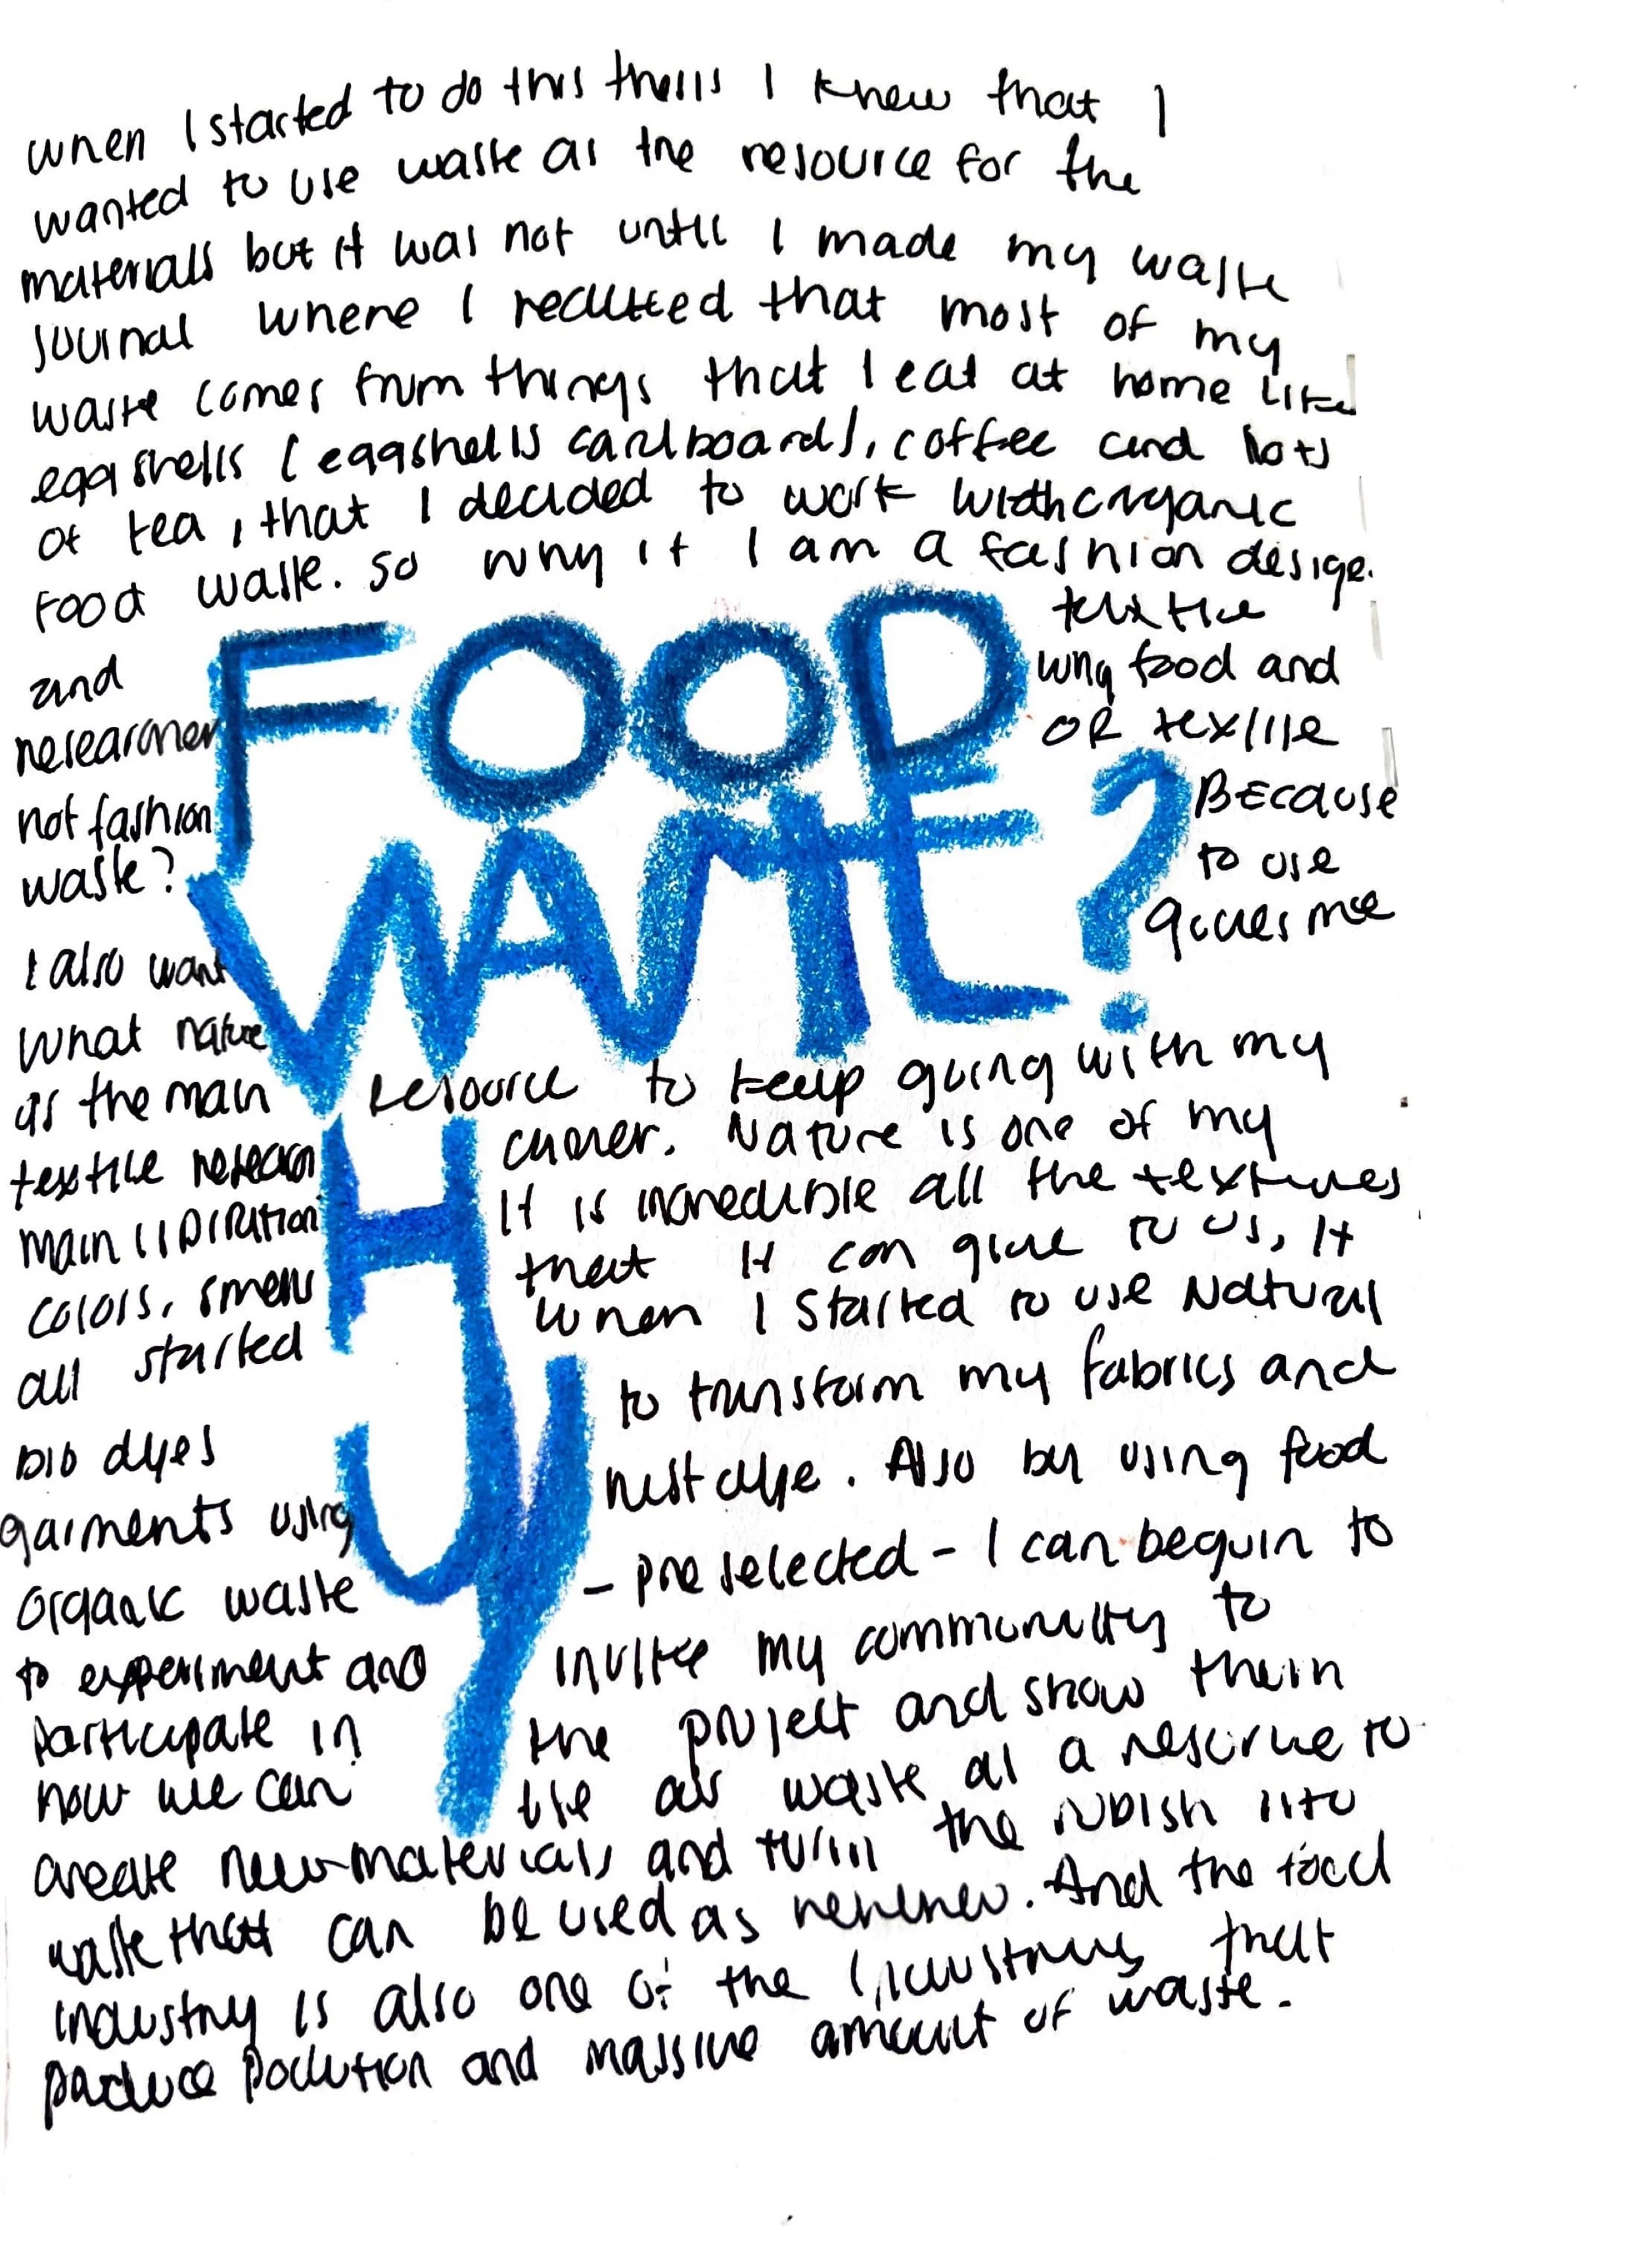 when I started to do this thesis I knew that I
wanted to use waste as the resource for the
materials but it was not until I made my waste
journal where I realized that most of my
waste comes from things that I eat at home like
eggshells (eggshells cardboard), coffee and lots
of tea, that I decided to work with organic
food waste. so why if I am a fashion desige.
and textile
researcher why food and
not fashion OR textile
waste? Because
I also want to use
what nature gives me
FOOD
WASTE?
WHY
as the main resource to keep going with my
textile research career. Nature is one of my
main inspiration It is incredible all the textures
colors, smells that it can give to us, It
all started when I started to use Natural
bio dyes to transform my fabrics and
garments using rust dye. Also by using food
organic waste - pre selected - I can beguin to
to experiment and invite my community to
participate in the project and show them
how we can use as waste as a resource to
create new materials and turn the rubish into
waste that can be used as renewed. And the food
industry is also one of the industries that
produce pollution and massive amount of waste.